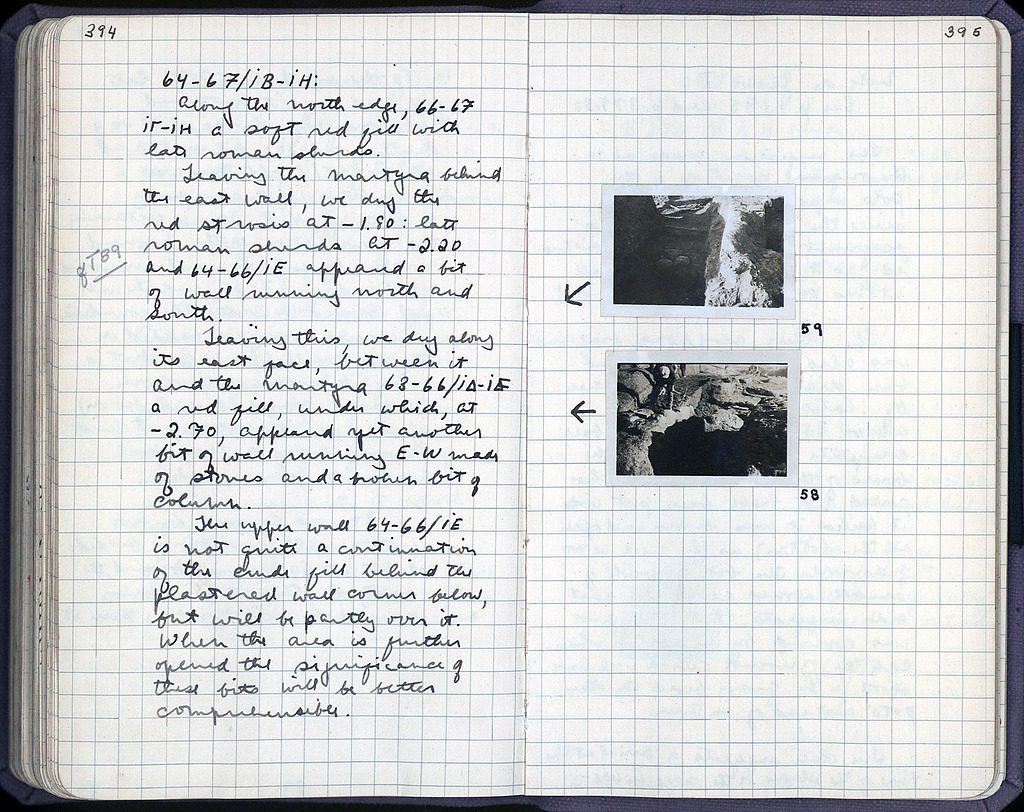 394
64-67/iB-iH:
Along the north edge, 66-67
iΓ-iH a soft red fill with
late roman sherds.
Leaving the martyra behind
the east wall, we dug the
red strosis at -1.80: late
roman sherds at -2.20
and 64-66/iE appeared a bit
of wall running north and
south.
Leaving this, we dug along
its east face, between it
and the martyra 63-66/iΔ-iE
a red fill, under which, at
-2.70, appeared yet another
bit of wall running E-W made
of stones and a broken bit of
column.
The upper wall 64-66/iE
is not quite a continuation
of the crude fill behind the
plastered wall corner below,
but will be partly over it.
When the area is further
opened the significance of
these bits will be better
comprehensible.
395
59
58